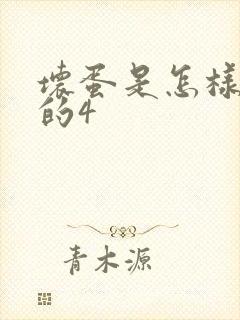 壞蛋是怎樣
的4
青木源